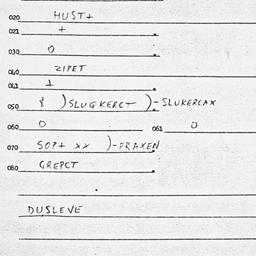 020 HUST+
021 +
030 0
040 ZIPET
041 +
050 )SLUGKERCT )-SLUKERCAX
060 0 061 0
070 SOP+ XX )-PRAXEN
080 GREPCT
DUSLEVE